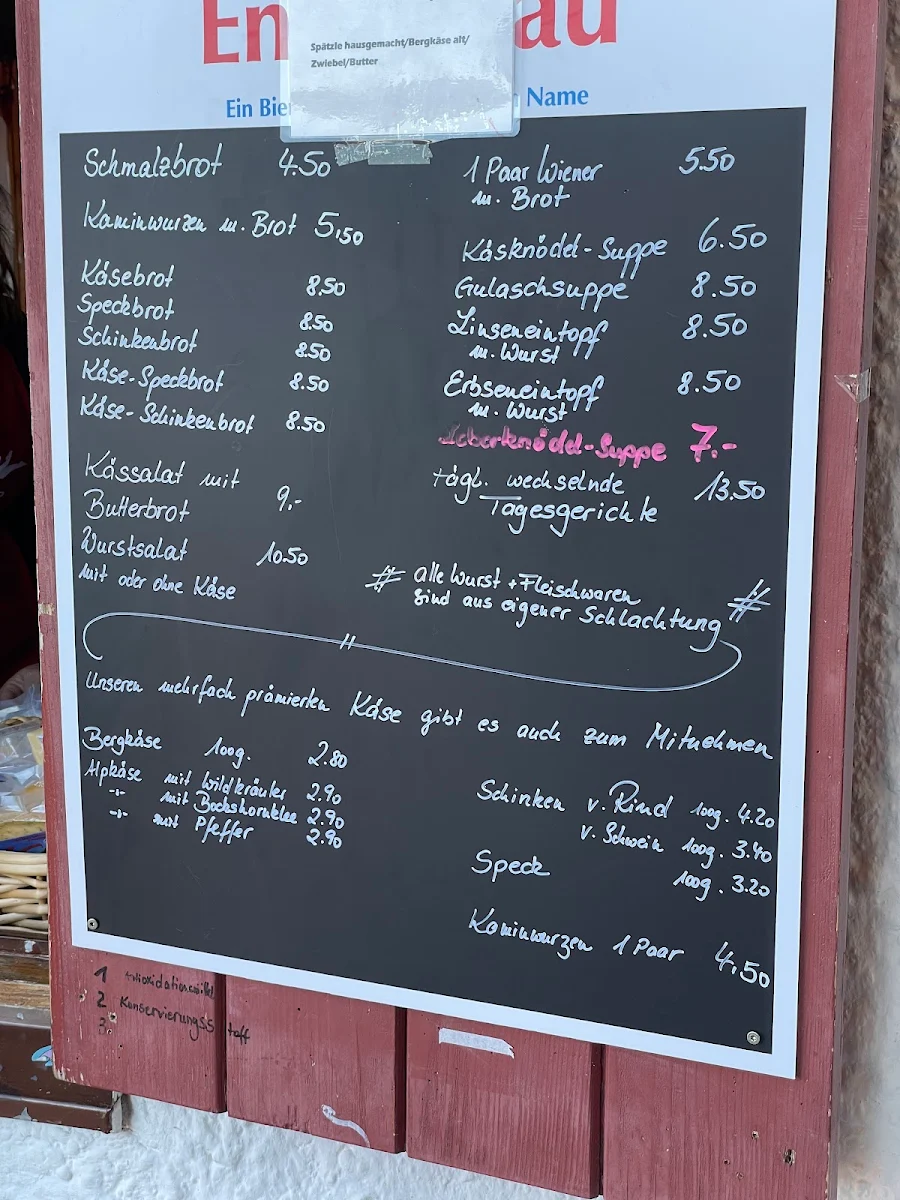 En au
Spätzle hausgemacht/Bergkäse alt/
Zwiebel/Butter
Ein Bie Name
Schmalzbrot 4.50
Kaminwurzen m. Brot 5,50
Käsebrot 8.50
Speckbrot 8.50
Schinkenbrot 8.50
Käse-Speckbrot 8.50
Käse-Schinkenbrot 8.50
Kässalat mit
Butterbrot 9,-
Wurstsalat 10.50
mit oder ohne Käse
1 Paar Wiener 5.50
m. Brot
Käsknödel-Suppe 6.50
Gulaschsuppe 8.50
Linseneintopf 8.50
m. Wurst
Erbseneintopf 8.50
m. Wurst
Leberknödel-Suppe 7.-
tägl. wechselnde 13.50
Tagesgerichte
# alle Wurst + Fleischwaren #
sind aus eigener Schlachtung
Unseren mehrfach prämierten Käse gibt es auch zum Mitnehmen
Bergkäse 100g. 2.80
Alpkäse mit Wildkräuter 2.90
-"- mit Bockshornklee 2.90
-"- mit Pfeffer 2.90
Schinken v. Rind 100g. 4.20
v. Schwein 100g. 3.40
Speck 100g. 3.20
Kaminwurzen 1 Paar 4,50
1
2 Konservierungsstoff
3